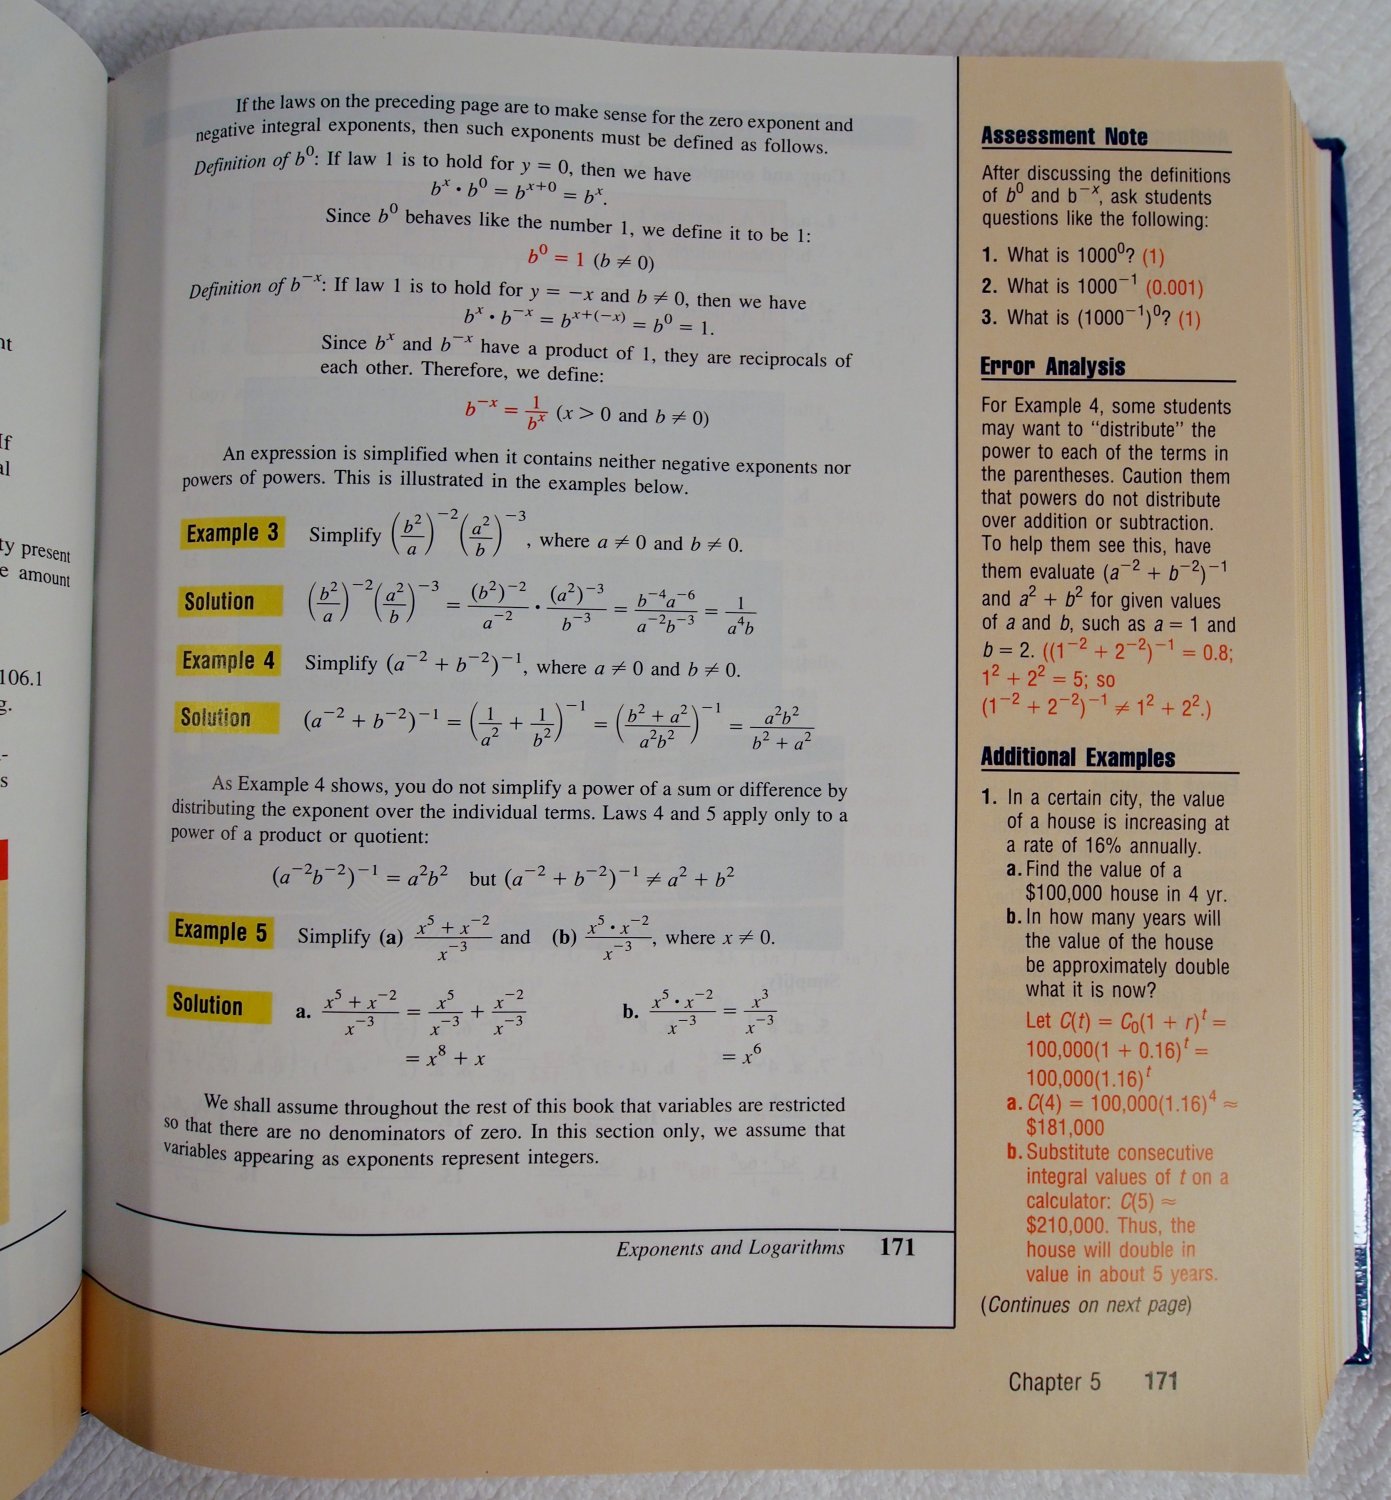 nt
If
al
ty present
e amount
106.1
g.
-
s
If the laws on the preceding page are to make sense for the zero exponent and
negative integral exponents, then such exponents must be defined as follows.
Definition of b⁰: If law 1 is to hold for y = 0, then we have
bˣ · b⁰ = bˣ⁺⁰ = bˣ.
Since b⁰ behaves like the number 1, we define it to be 1:
b⁰ = 1 (b ≠ 0)
Definition of b⁻ˣ: If law 1 is to hold for y = −x and b ≠ 0, then we have
bˣ · b⁻ˣ = bˣ⁺⁽⁻ˣ⁾ = b⁰ = 1.
Since bˣ and b⁻ˣ have a product of 1, they are reciprocals of
each other. Therefore, we define:
b⁻ˣ = 1/bˣ (x > 0 and b ≠ 0)
An expression is simplified when it contains neither negative exponents nor
powers of powers. This is illustrated in the examples below.
Example 3 Simplify (b²/a)⁻²(a²/b)⁻³, where a ≠ 0 and b ≠ 0.
Solution (b²/a)⁻²(a²/b)⁻³ = (b²)⁻²/a⁻² · (a²)⁻³/b⁻³ = b⁻⁴a⁻⁶/a⁻²b⁻³ = 1/a⁴b
Example 4 Simplify (a⁻² + b⁻²)⁻¹, where a ≠ 0 and b ≠ 0.
Solution (a⁻² + b⁻²)⁻¹ = (1/a² + 1/b²)⁻¹ = (b² + a²/a²b²)⁻¹ = a²b²/b² + a²
As Example 4 shows, you do not simplify a power of a sum or difference by
distributing the exponent over the individual terms. Laws 4 and 5 apply only to a
power of a product or quotient:
(a⁻²b⁻²)⁻¹ = a²b² but (a⁻² + b⁻²)⁻¹ ≠ a² + b²
Example 5 Simplify (a) x⁵ + x⁻²/x⁻³ and (b) x⁵ · x⁻²/x⁻³, where x ≠ 0.
Solution a. x⁵ + x⁻²/x⁻³ = x⁵/x⁻³ + x⁻²/x⁻³ b. x⁵ · x⁻²/x⁻³ = x³/x⁻³
= x⁸ + x = x⁶
We shall assume throughout the rest of this book that variables are restricted
so that there are no denominators of zero. In this section only, we assume that
variables appearing as exponents represent integers.
Exponents and Logarithms 171
Assessment Note
After discussing the definitions
of b⁰ and b⁻ˣ, ask students
questions like the following:
1. What is 1000⁰? (1)
2. What is 1000⁻¹ (0.001)
3. What is (1000⁻¹)⁰? (1)
Error Analysis
For Example 4, some students
may want to "distribute" the
power to each of the terms in
the parentheses. Caution them
that powers do not distribute
over addition or subtraction.
To help them see this, have
them evaluate (a⁻² + b⁻²)⁻¹
and a² + b² for given values
of a and b, such as a = 1 and
b = 2. ((1⁻² + 2⁻²)⁻¹ = 0.8;
1² + 2² = 5; so
(1⁻² + 2⁻²)⁻¹ ≠ 1² + 2².)
Additional Examples
1. In a certain city, the value
of a house is increasing at
a rate of 16% annually.
a. Find the value of a
$100,000 house in 4 yr.
b. In how many years will
the value of the house
be approximately double
what it is now?
Let C(t) = C₀(1 + r)ᵗ =
100,000(1 + 0.16)ᵗ =
100,000(1.16)ᵗ
a. C(4) = 100,000(1.16)⁴ ≈
$181,000
b. Substitute consecutive
integral values of t on a
calculator: C(5) ≈
$210,000. Thus, the
house will double in
value in about 5 years.
(Continues on next page)
Chapter 5 171